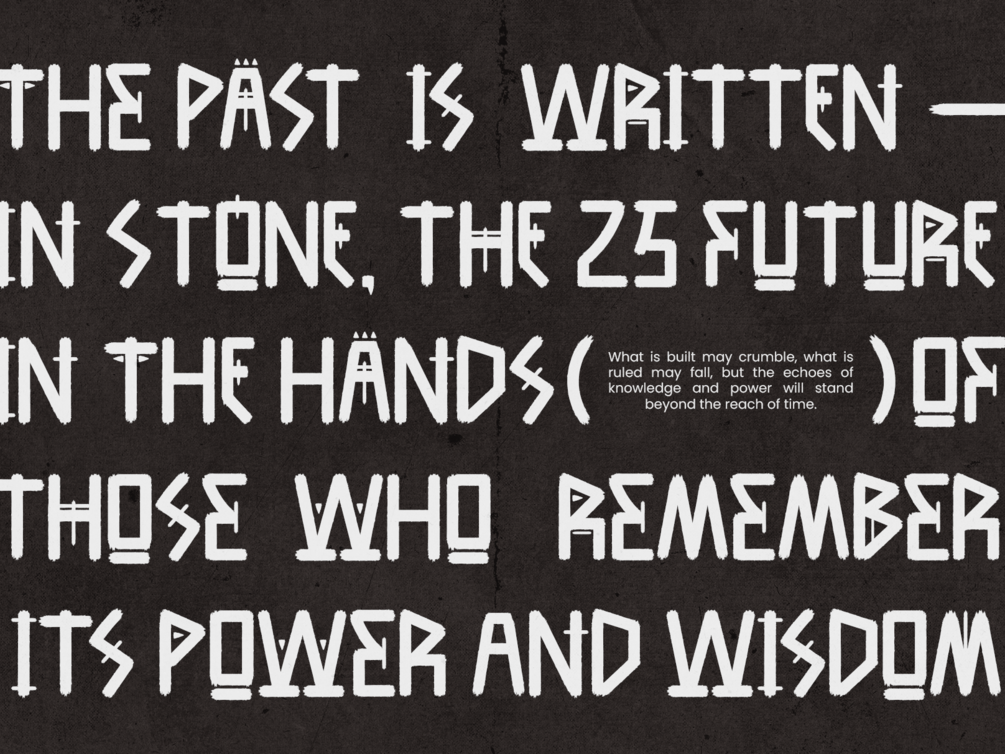 THE PAST IS WRITTEN —
IN STONE, THE 25 FUTURE
IN THE HANDS(
What is built may crumble, what is
ruled may fall, but the echoes of
knowledge and power will stand
beyond the reach of time.
) OF
THOSE WHO REMEMBER
ITS POWER AND WISDOM